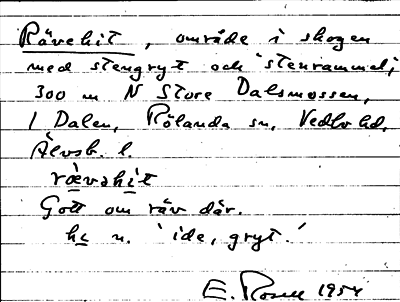 Rävehit, område i skogen
med stengryt och stenrammel,
300 m N Store Dalsmossen,
1 Dalen, Rölanda sn, Vedbo hd,
Älvsb. l.
rævəhit
Gott om räv där.
hi n. 'ide, gryt.'
E. Rosell 1954